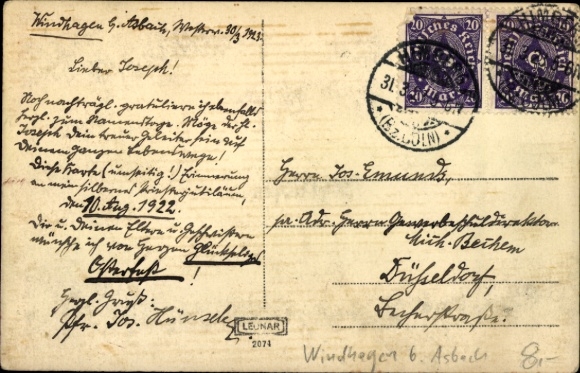 Windhagen b. Asbach, Westerw. 30/3 1923.
Lieber Joseph!
Noch nachträgl. gratuliere ich ebenfalls
herzl. zum Namenstage. Möge der hl.
Joseph Dein treuer Geleiter sein auf
Deinem ganzen Lebenswege!
Diese Karte (umseitig!) Erinnerung
an mein silbernes Priesterjubiläum,
den 10. Aug. 1922.
Dir u. Deinen Eltern u. Geschwistern
wünsche ich von Herzen Glückseliges
Osterfest!
Herzl. Gruß
Pfr. Jos.
Deutsches Reich
20
20
Mark
Deutsches Reich
20
Mark
31.3
(Bz. Cöln)
Herrn Jos. Edmunds,
pr. Adr. Herrn Gewerbeschuldirektor
Mich. Bechem
Düsseldorf,
LEONAR
2074
Windhagen b. Asbach
8,-